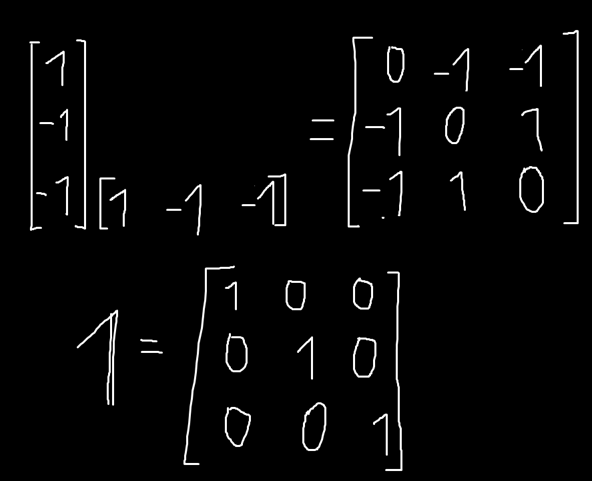 [1 -1 -1] [1 -1 -1] = [0 -1 -1
-1 0 1
-1 1 0]
1 = [1 0 0
0 1 0
0 0 1]